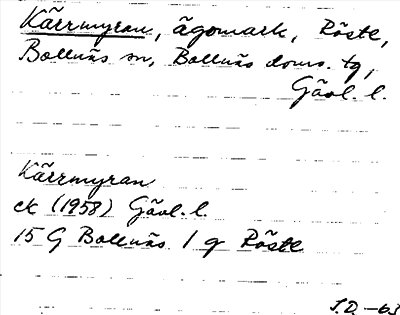 Kärrmyran, ägomark, Röste,
Bollnäs sn, Bollnäs doms. tg,
Gävl. l.
Kärrmyran
ek (1958) Gävl. l.
15 G Bollnäs 1 g Röste
J.D. -63